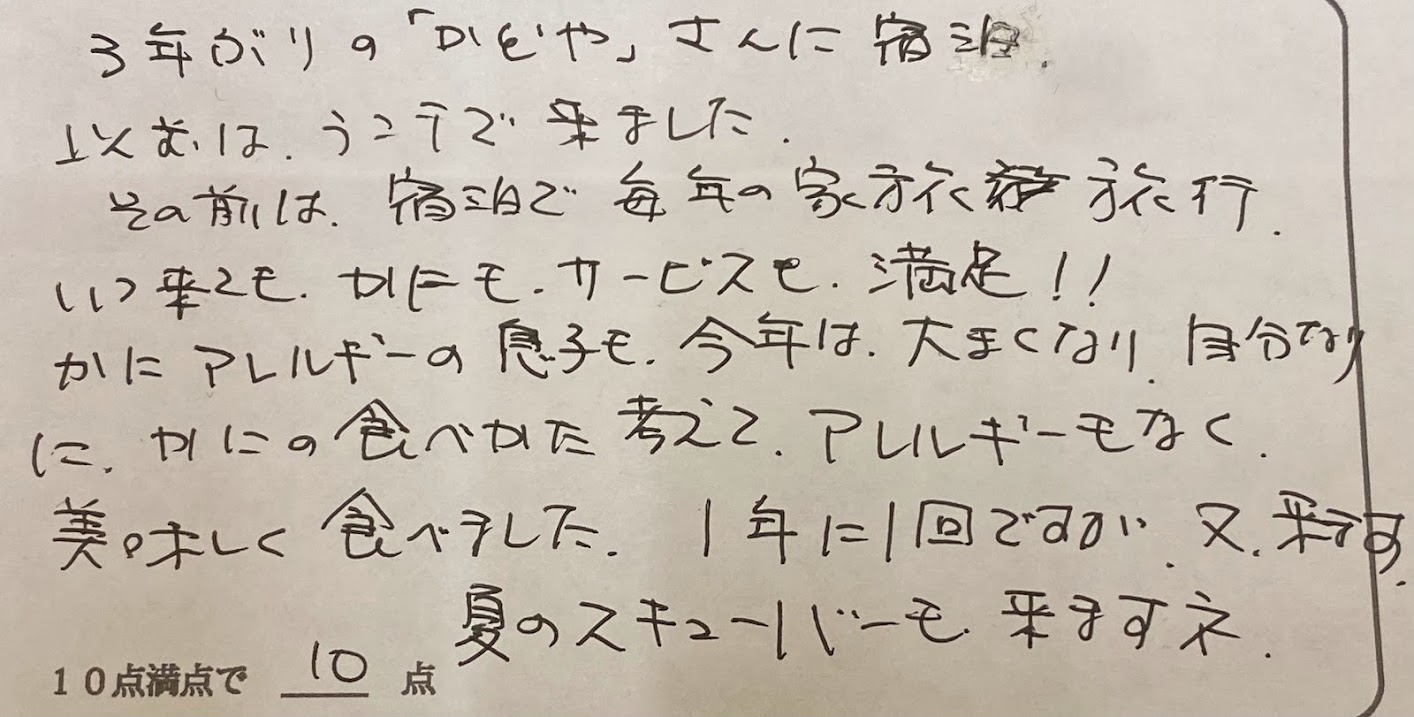 3年がりの「かどや」さんに宿泊.
以前は、うこうで来ました.
その前は、宿泊で毎年の家族旅行.
いつ来ても、かにも、サービスも、満足!!
かにアレルギーの息子も、今年は、大まくなり、自分なり
に、かにの食べかた考えて、アレルギーもなく、
美味しく食べました. 1年に1回ですが、又、来ます.
夏のスキューバーも、来ますネ.
10点満点で 10 点